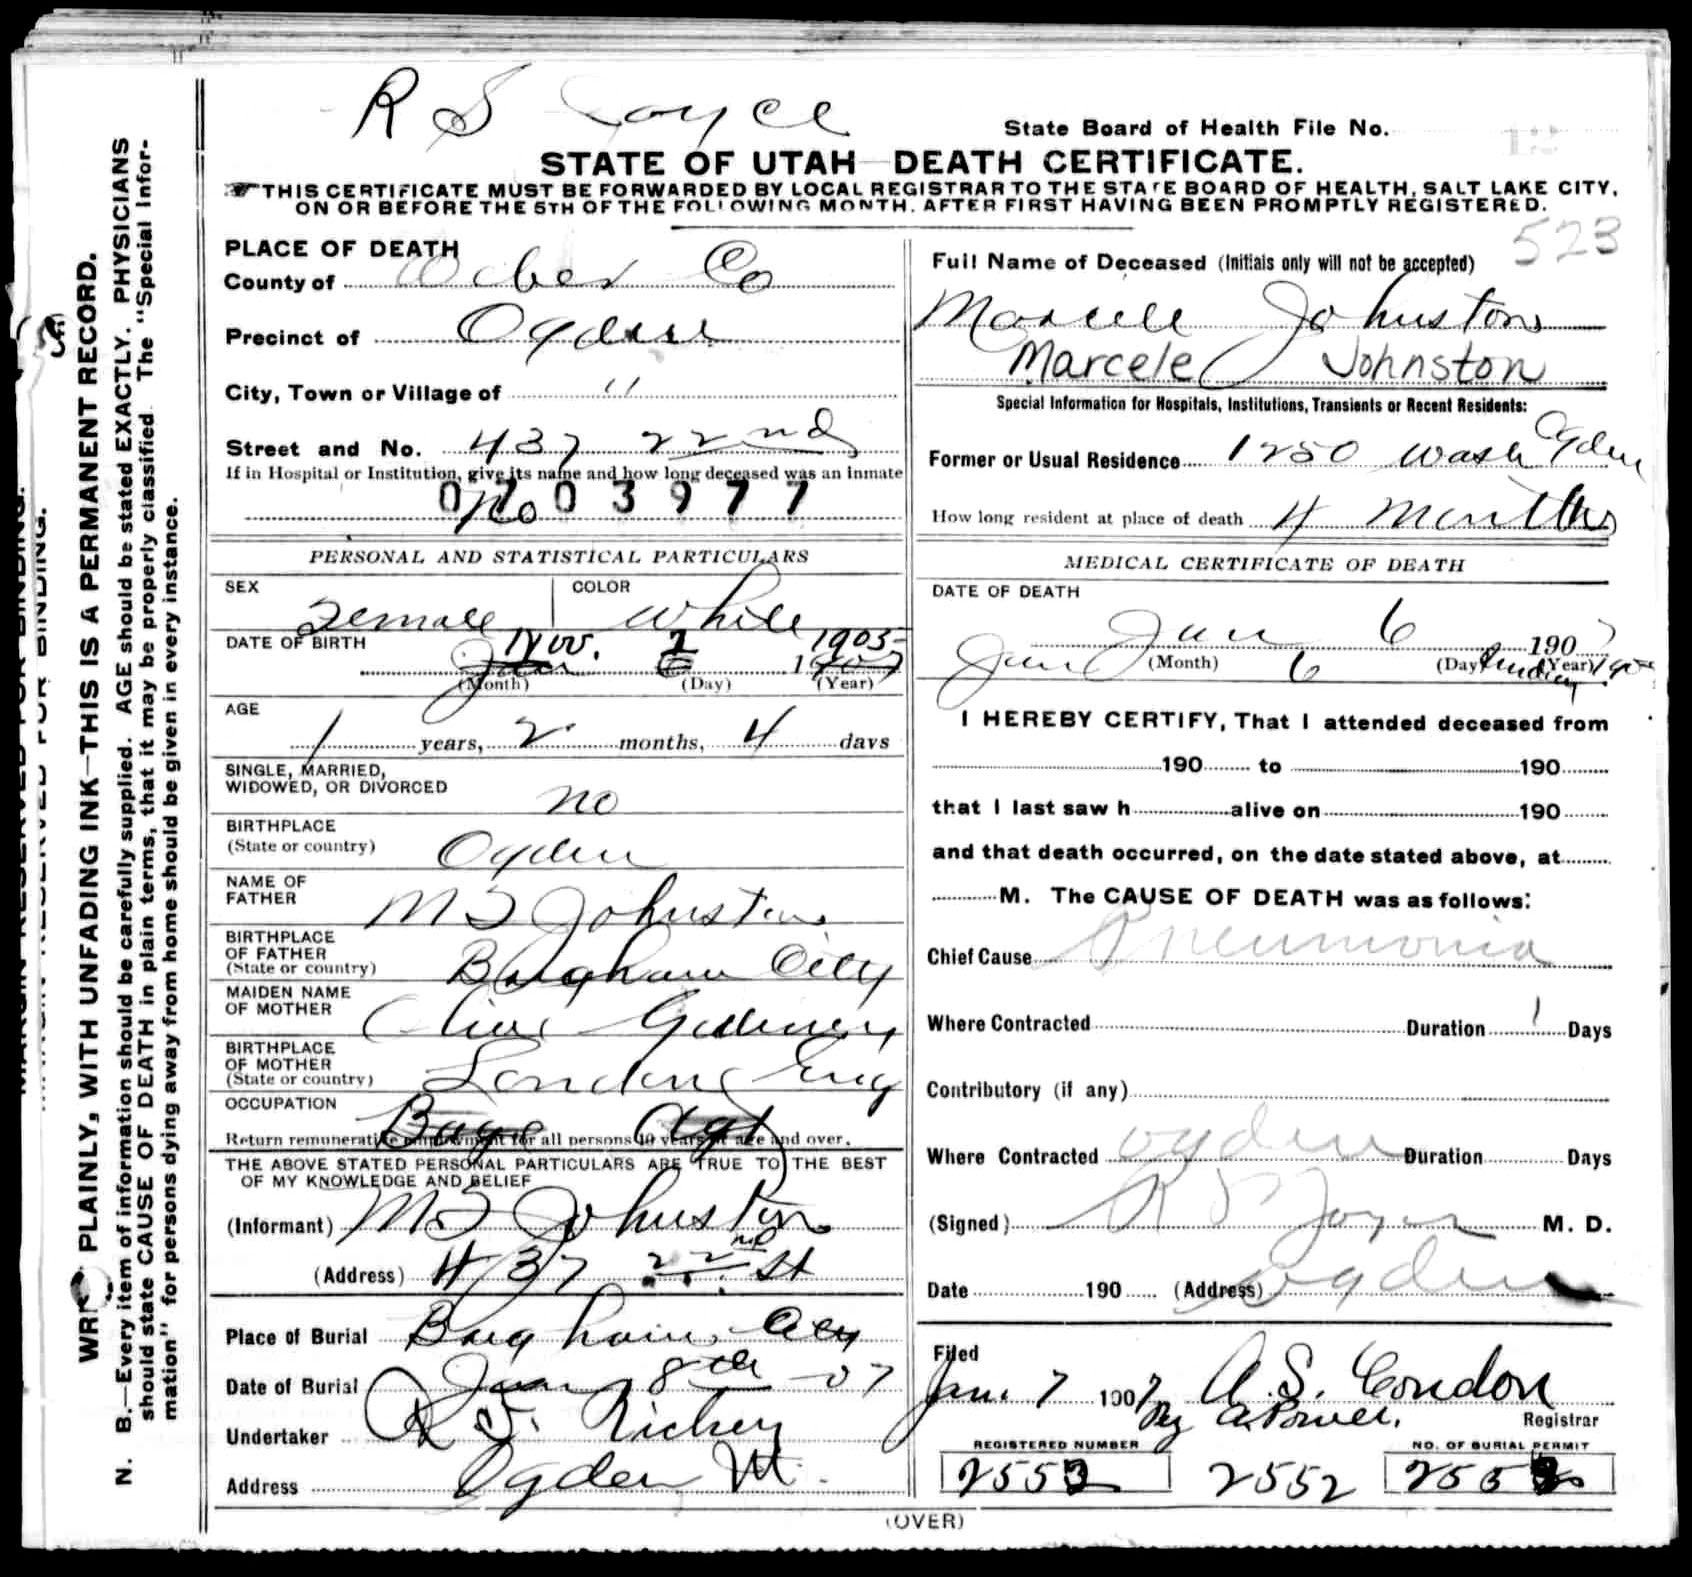 State Board of Health File No.
STATE OF UTAH—DEATH CERTIFICATE.
THIS CERTIFICATE MUST BE FORWARDED BY LOCAL REGISTRAR TO THE STATE BOARD OF HEALTH, SALT LAKE CITY,
ON OR BEFORE THE 5TH OF THE FOLLOWING MONTH, AFTER FIRST HAVING BEEN PROMPTLY REGISTERED.
523
PLACE OF DEATH
County of Weber Co
Precinct of Ogden
City, Town or Village of "
Street and No. 437 22nd
If in Hospital or Institution, give its name and how long deceased was an inmate
No
0703977
PERSONAL AND STATISTICAL PARTICULARS
SEX Female COLOR White
DATE OF BIRTH Nov. 2 1905
Jan 6 1907
(Month) (Day) (Year)
AGE
1 years, 2 months, 4 days
SINGLE, MARRIED,
WIDOWED, OR DIVORCED no
BIRTHPLACE
(State or country) Ogden
NAME OF
FATHER M S Johnston
BIRTHPLACE
OF FATHER
(State or country) Brigham City
MAIDEN NAME
OF MOTHER Olive
BIRTHPLACE
OF MOTHER
(State or country) London Eng
OCCUPATION
Bage Agt
Return remunerative employment for all persons 10 years of age and over.
THE ABOVE STATED PERSONAL PARTICULARS ARE TRUE TO THE BEST
OF MY KNOWLEDGE AND BELIEF
(Informant) M S Johnston
(Address) 437 22nd St
Place of Burial Brigham City
Date of Burial Jan 8th 07
Undertaker Richey
Address Ogden Ut.
Full Name of Deceased (Initials only will not be accepted)
Marcele Johnston
Marcele Johnston
Special Information for Hospitals, Institutions, Transients or Recent Residents:
Former or Usual Residence 1250 Wash Ogden
How long resident at place of death 4 Months
MEDICAL CERTIFICATE OF DEATH
DATE OF DEATH
Jan 6 1907
Jan 6
(Month) (Day) (Year)
I HEREBY CERTIFY, That I attended deceased from
190 to 190
that I last saw h alive on 190
and that death occurred, on the date stated above, at
M. The CAUSE OF DEATH was as follows:
Chief Cause Pneumonia
Where Contracted Duration 1 Days
Contributory (if any)
Where Contracted Ogden Duration Days
(Signed) M. D.
Date 190 (Address) Ogden
Filed
Jan. 7 1907 A. S. Condon
By Registrar
REGISTERED NUMBER NO. OF BURIAL PERMIT
2552
(OVER)
MARGIN RESERVED FOR BINDING.
PLAINLY, WITH UNFADING INK—THIS IS A PERMANENT RECORD.
N. B.—Every item of information should be carefully supplied. AGE should be stated EXACTLY. PHYSICIANS
should state CAUSE OF DEATH in plain terms, that it may be properly classified. The "Special Infor-
mation" for persons dying away from home should be given in every instance.